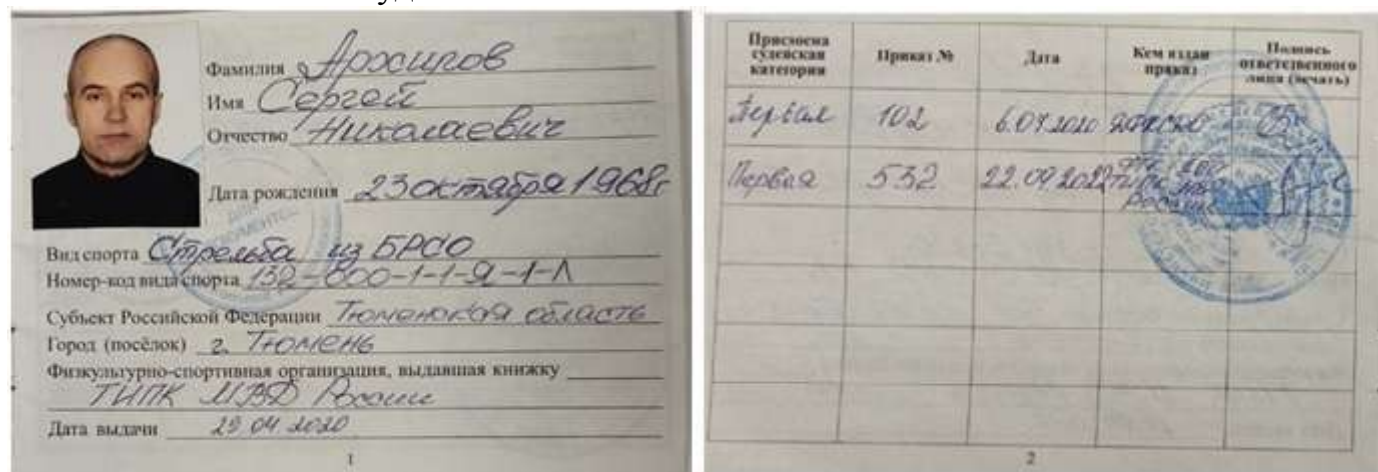 Фамилия Архипов
Имя Сергей
Отчество Николаевич
Дата рождения 23 октября 1968г
Вид спорта Стрельба из БРСО
Номер-код вида спорта 132-000-1-1-Я-1-Л
Субъект Российской Федерации Тюменская область
Город (посёлок) г. Тюмень
Физкультурно-спортивная организация, выдавшая книжку
ТИПК МВД России
Дата выдачи 29 04 2020
1
Присвоена судейская категория Приказ № Дата Кем издан приказ Подпись ответственного лица (печать)
Первая 102 2020
Первая 532 22.09 2022 ТИПК России
2